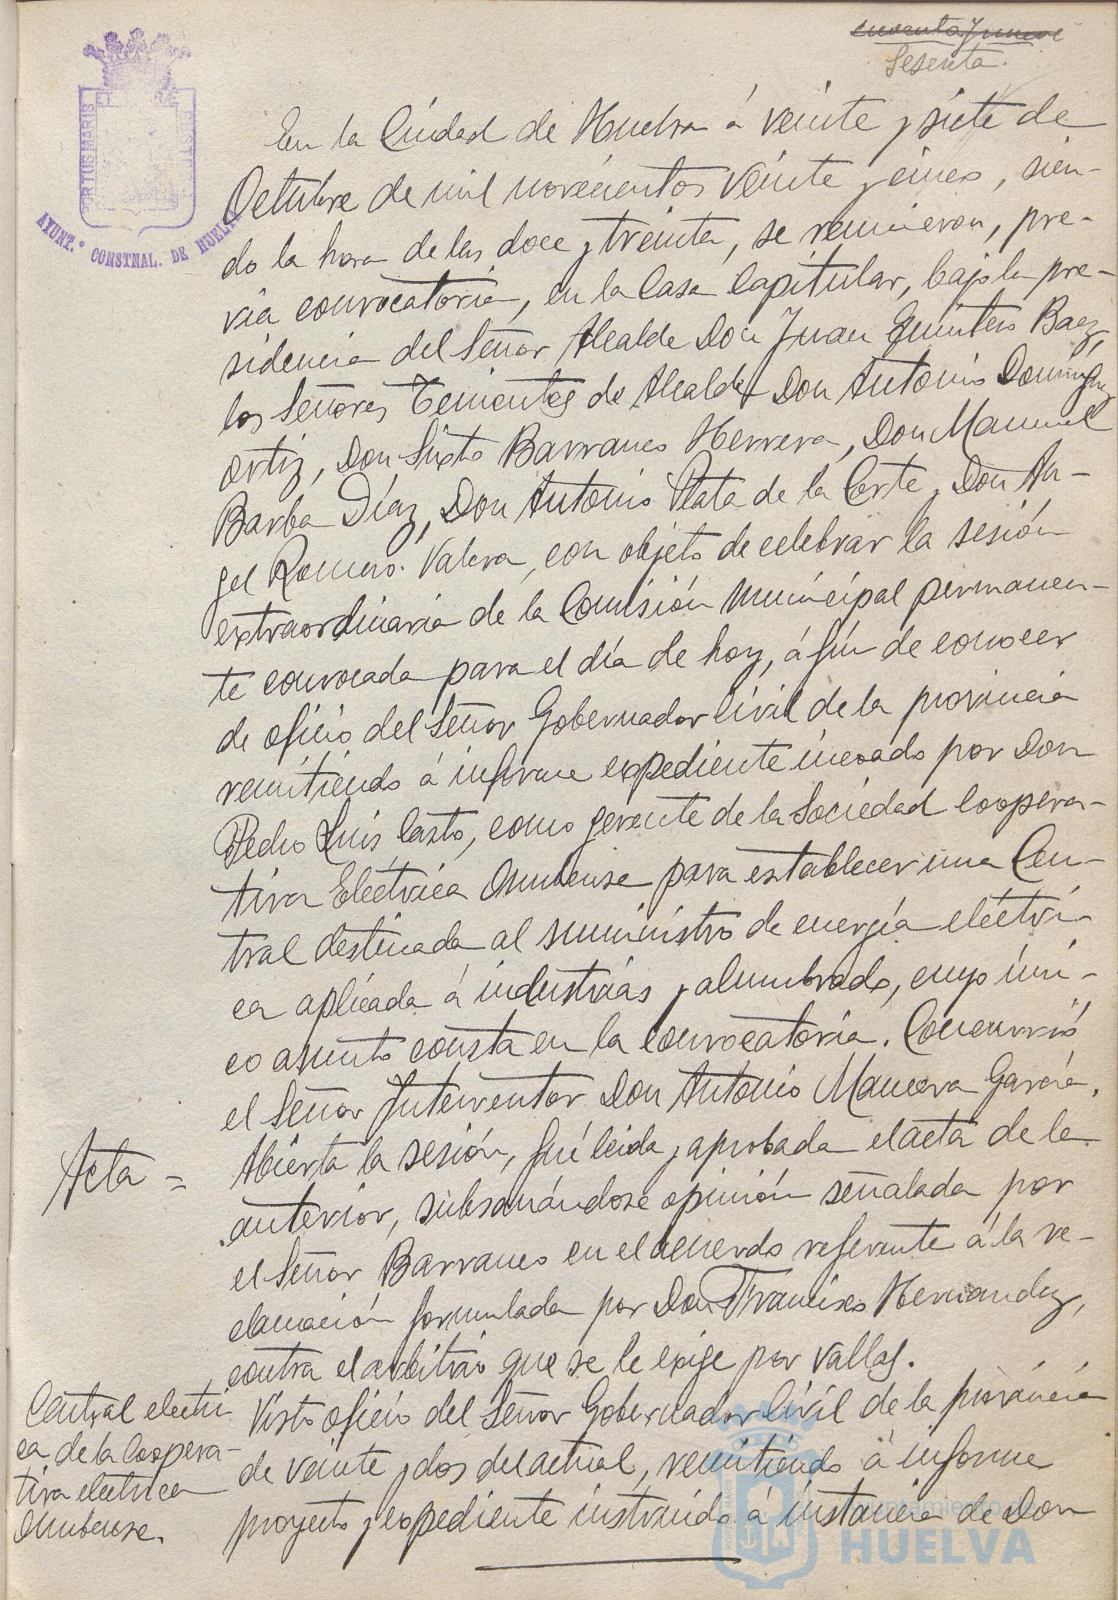 cincuenta y nueve
Sesenta.
PORTUS MARIS
AYUNT.º CONSTNAL. DE HUELVA
En la Ciudad de Huelva á veinte y siete de
Octubre de mil novecientos veinte y cinco, sien-
do la hora de las doce y treinta, se reunieron, pre-
via convocatoria, en la Casa Capitular, bajo la pre-
sidencia del Señor Alcalde Don Juan Quintero Baez,
los Señores Tenientes de Alcalde Don Antonio Dominguez
Ortiz, Don Sixto Barranco Herrera, Don Manuel
Barba Díaz, Don Antonio Plata de la Corte y Don An-
gel Romero Valera, con objeto de celebrar la sesión
extraordinaria de la Comisión municipal permanen-
te convocada para el día de hoy, á fin de conocer
de oficio del Señor Gobernador Civil de la provincia
remitiendo á informe expediente incoado por Don
Pedro Luis Casto, como gerente de la Sociedad Coopera-
tiva Eléctrica Onubense para establecer una Cen-
tral destinada al suministro de energía eléctri-
ca aplicada á industrias y alumbrado, cuyo úni-
co asunto consta en la convocatoria. Concurrió
el Señor Interventor Don Antonio Mancera García.
Acta =
Abierta la sesión, fué leida y aprobada el acta de la
anterior, subsanándose opinión señalada por
el Señor Barranco en el acuerdo referente á la re-
clamación formulada por Don Francisco Hernandez,
contra el arbitrio que se le exige por vallas.
Central electri
ca de la Coopera-
tiva electrica
Onubense.
Visto oficio del Señor Gobernador Civil de la provincia
de veinte y dos del actual, remitiendo á informe
proyecto y expediente instruido á instancia de Don
Ayuntamiento de
HUELVA